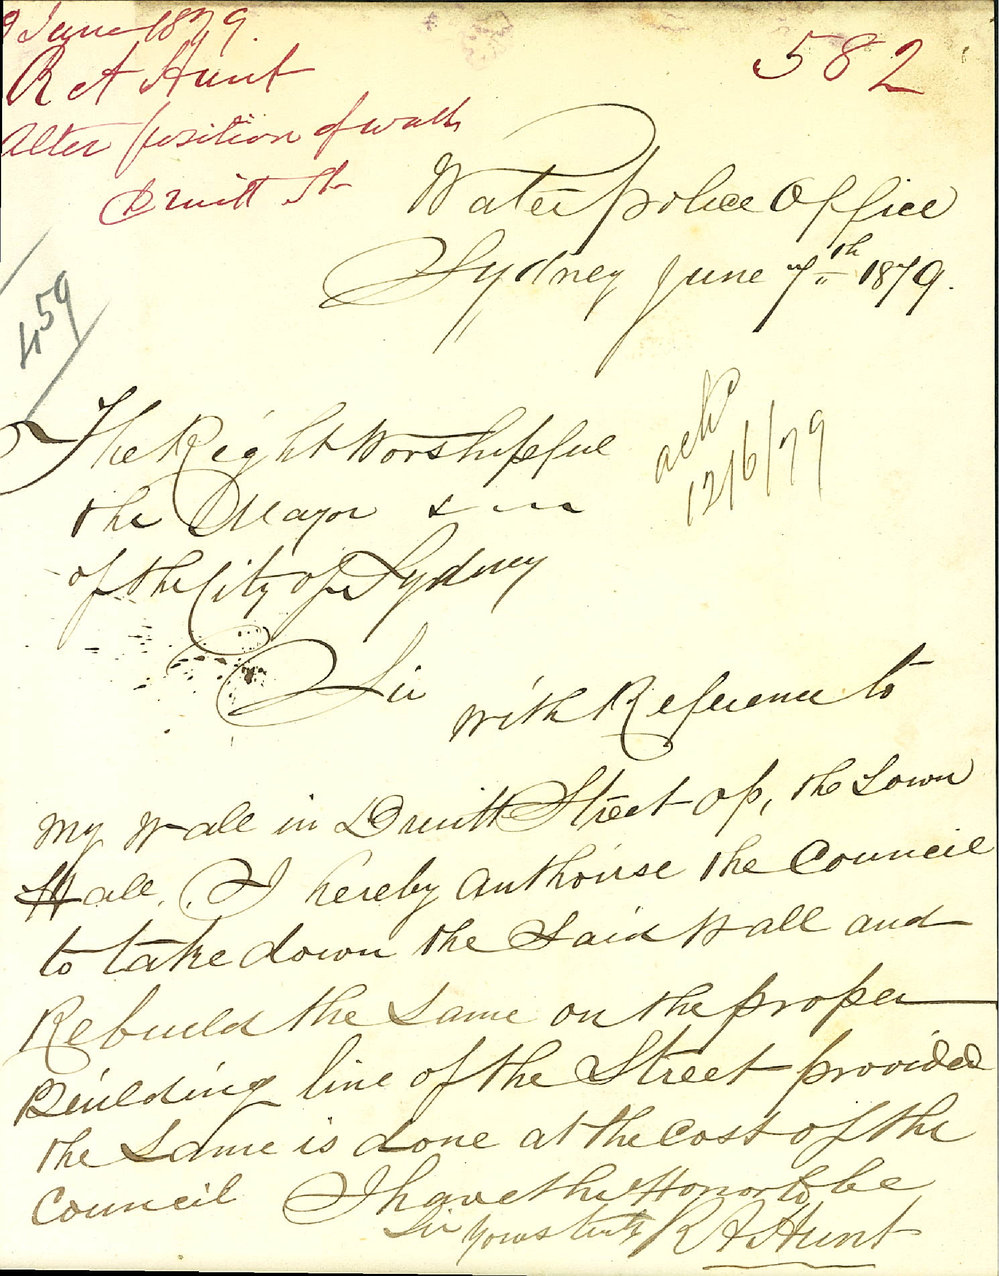 9 June 1879.
R A Hunt
Alter position of wall
Druitt St
582
459
Water Police Office
Sydney June 7th 1879.
ackd
12/6/79
The Right Worshipful
the Mayor &
of the City of Sydney
Sir
with Reference to
my Wall in Druitt Street op, the Town
Hall. I hereby authorise the Council
to take down the Said Wall and
Rebuild the Same on the proper
Building line of the Street provided
the Same is done at the Cost of the
Council I have the Honor to be
Sir yours truly R A Hunt